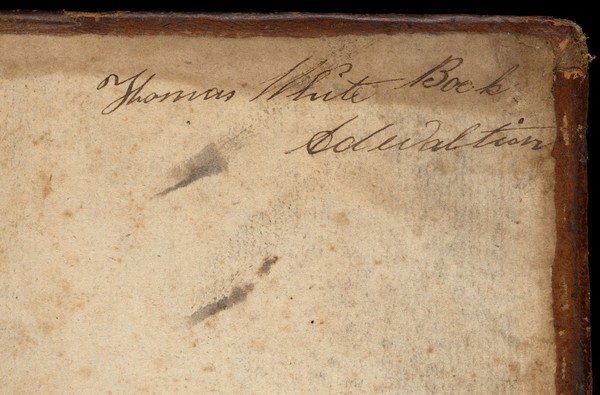 Thomas White Book
Adwaltion